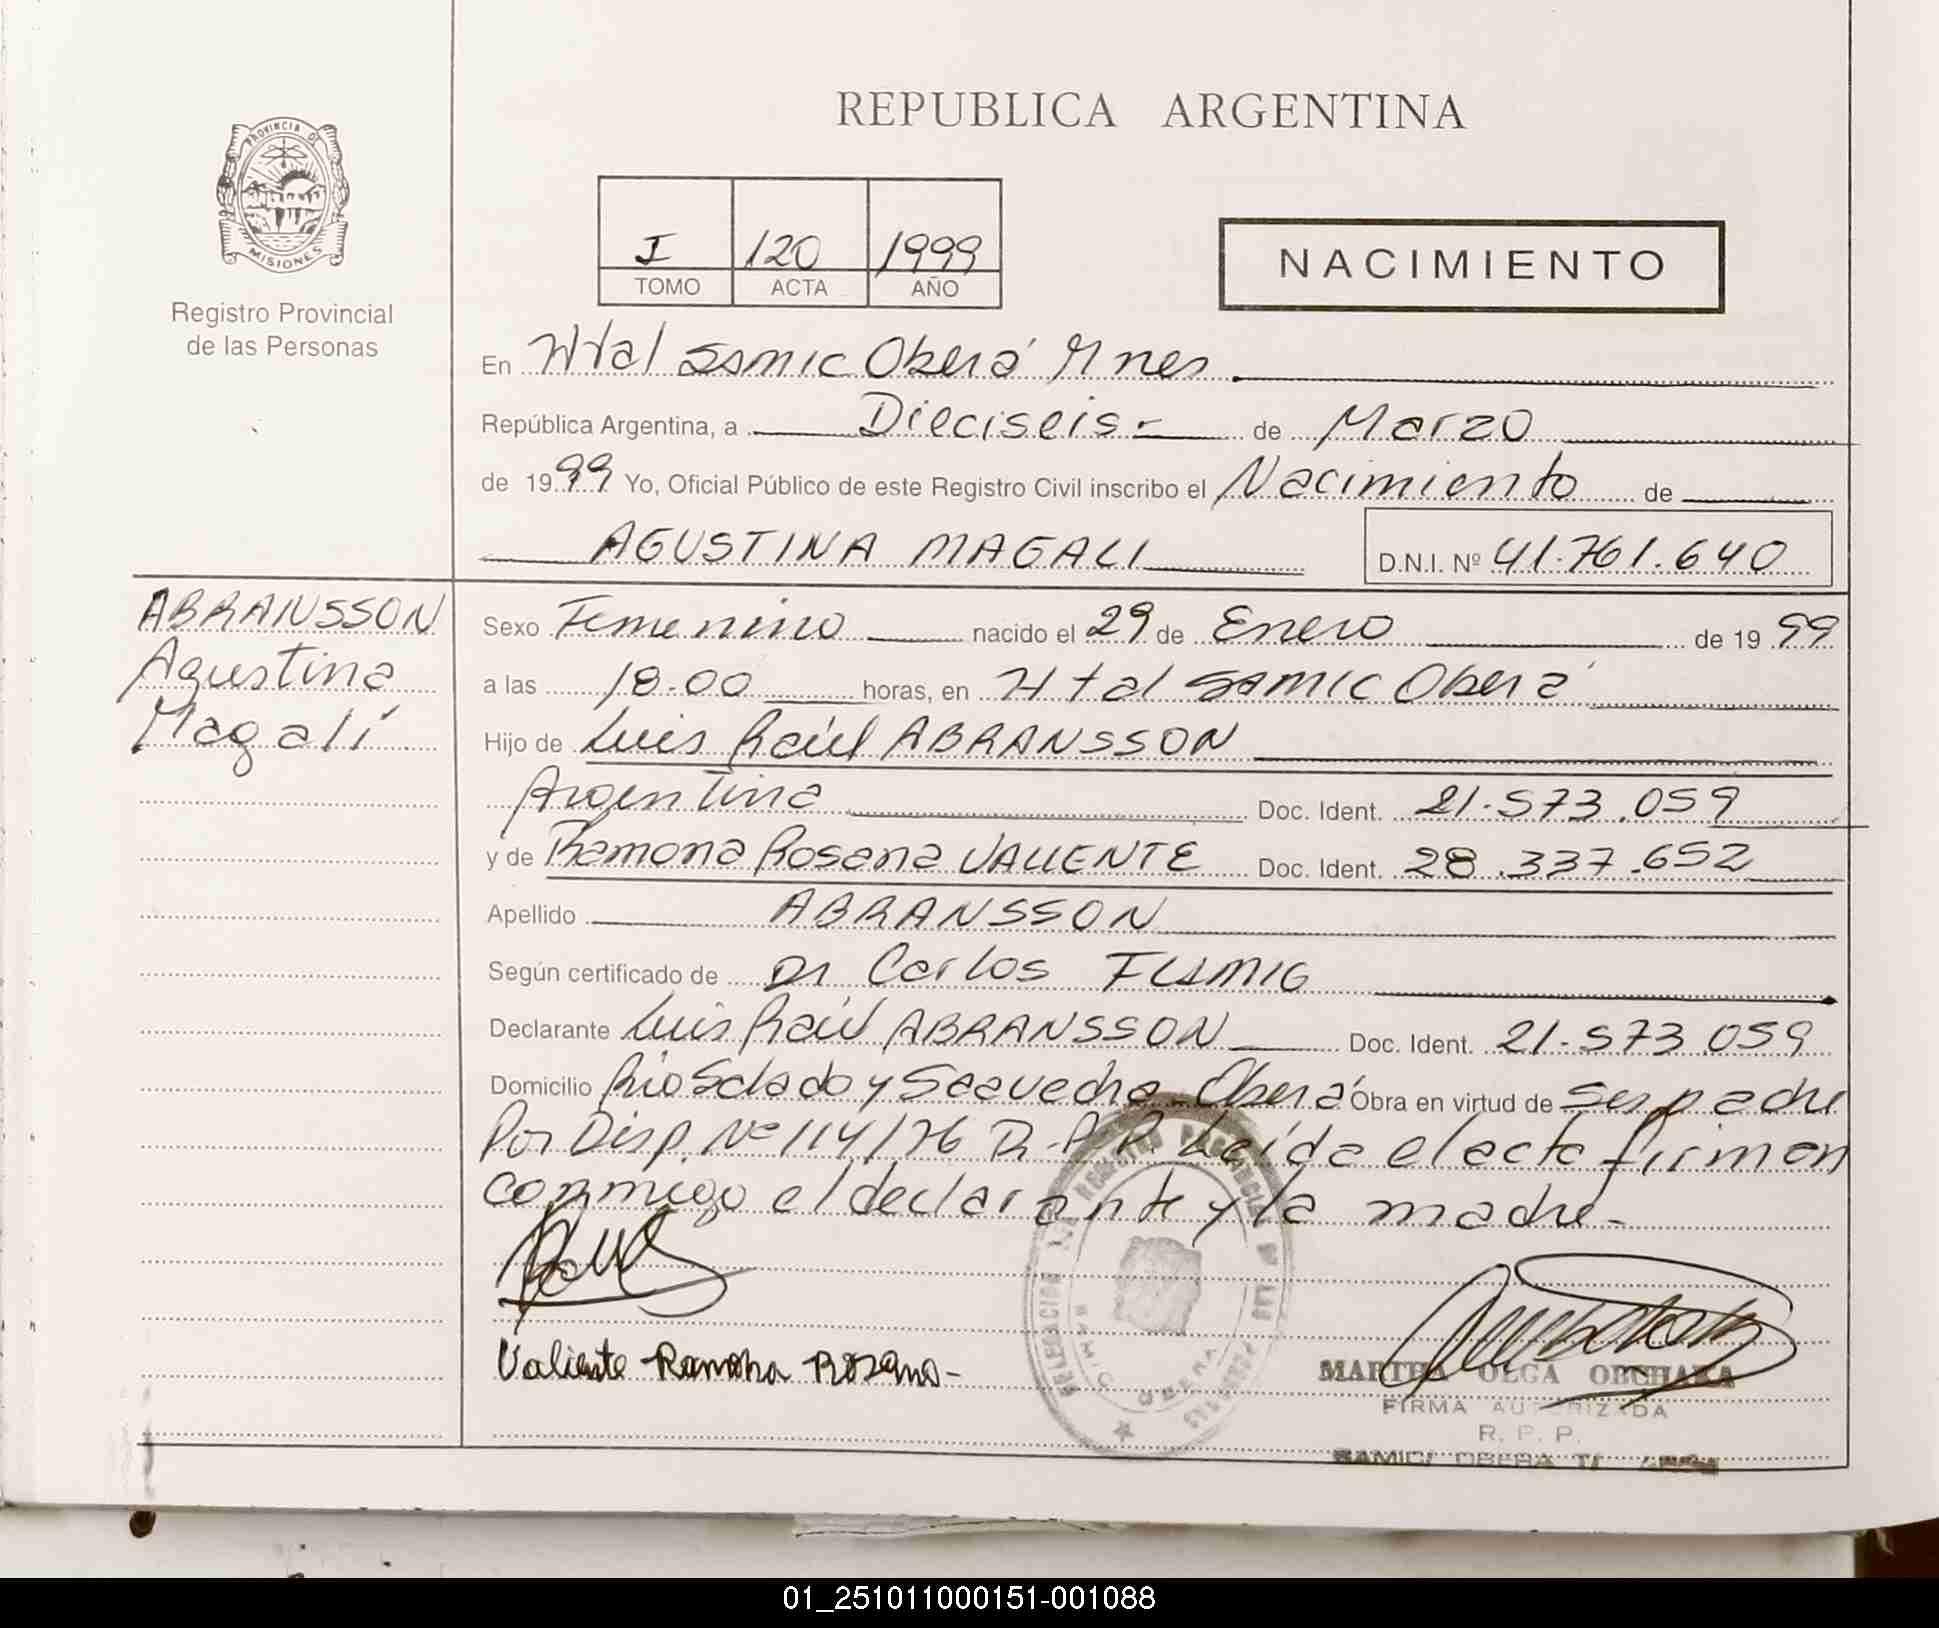 REPUBLICA ARGENTINA
PROVINCIA DE
MISIONES
Registro Provincial
de las Personas
I 120 1999
TOMO ACTA AÑO
NACIMIENTO
En Htal Samic Oberá Mnes
República Argentina, a Dieciseis - de Marzo
de 1999 Yo, Oficial Público de este Registro Civil inscribo el Nacimiento de
AGUSTINA MAGALI D.N.I. Nº 41.761.640
ABRANSSON
Agustina
Magalí
Sexo Femenino nacido el 29 de Enero de 1999
a las 18.00 horas, en Htal Samic Oberá
Hijo de Luis Raúl ABRANSSON
Argentina Doc. Ident. 21.573.059
y de Ramona Rosana VALIENTE Doc. Ident. 28.337.652
Apellido ABRANSSON
Según certificado de Dr Carlos
Declarante Luis Raúl ABRANSSON Doc. Ident. 21.573.059
Domicilio Rio Salado y Saavedra - Oberá Obra en virtud de ser padre
Por Disp. Nº 114/76 R.P.P. Leída el acta firman
conmigo el declarante y la madre -
Valiente Ramona Rosana -
DELEGACION REGISTRO PROVINCIAL DE LAS PERSONAS
OBERA
MARTHA OLGA OBUHAKA
FIRMA AUTORIZADA
R. P. P.
SAMIC OBERA
01_251011000151-001088